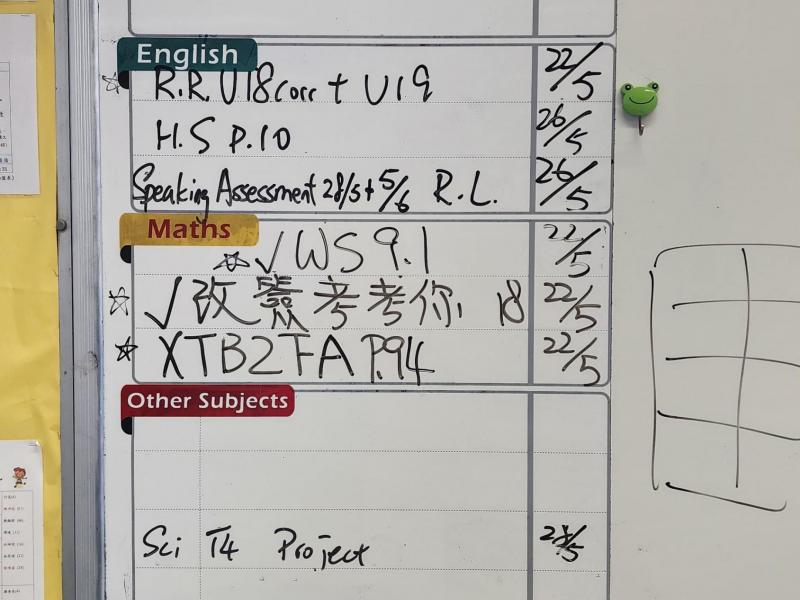 English
R.R. U18 corr + U19 22/5
H.S P.10 26/5
Speaking Assessment 28/5 + 5/6 R.L. 26/5
Maths
☆ ✓ WS 9.1 22/5
☆ ✓ 改 考考你 18 22/5
☆ X TB2TA P.94 22/5
Other Subjects
Sci T4 Project 28/5